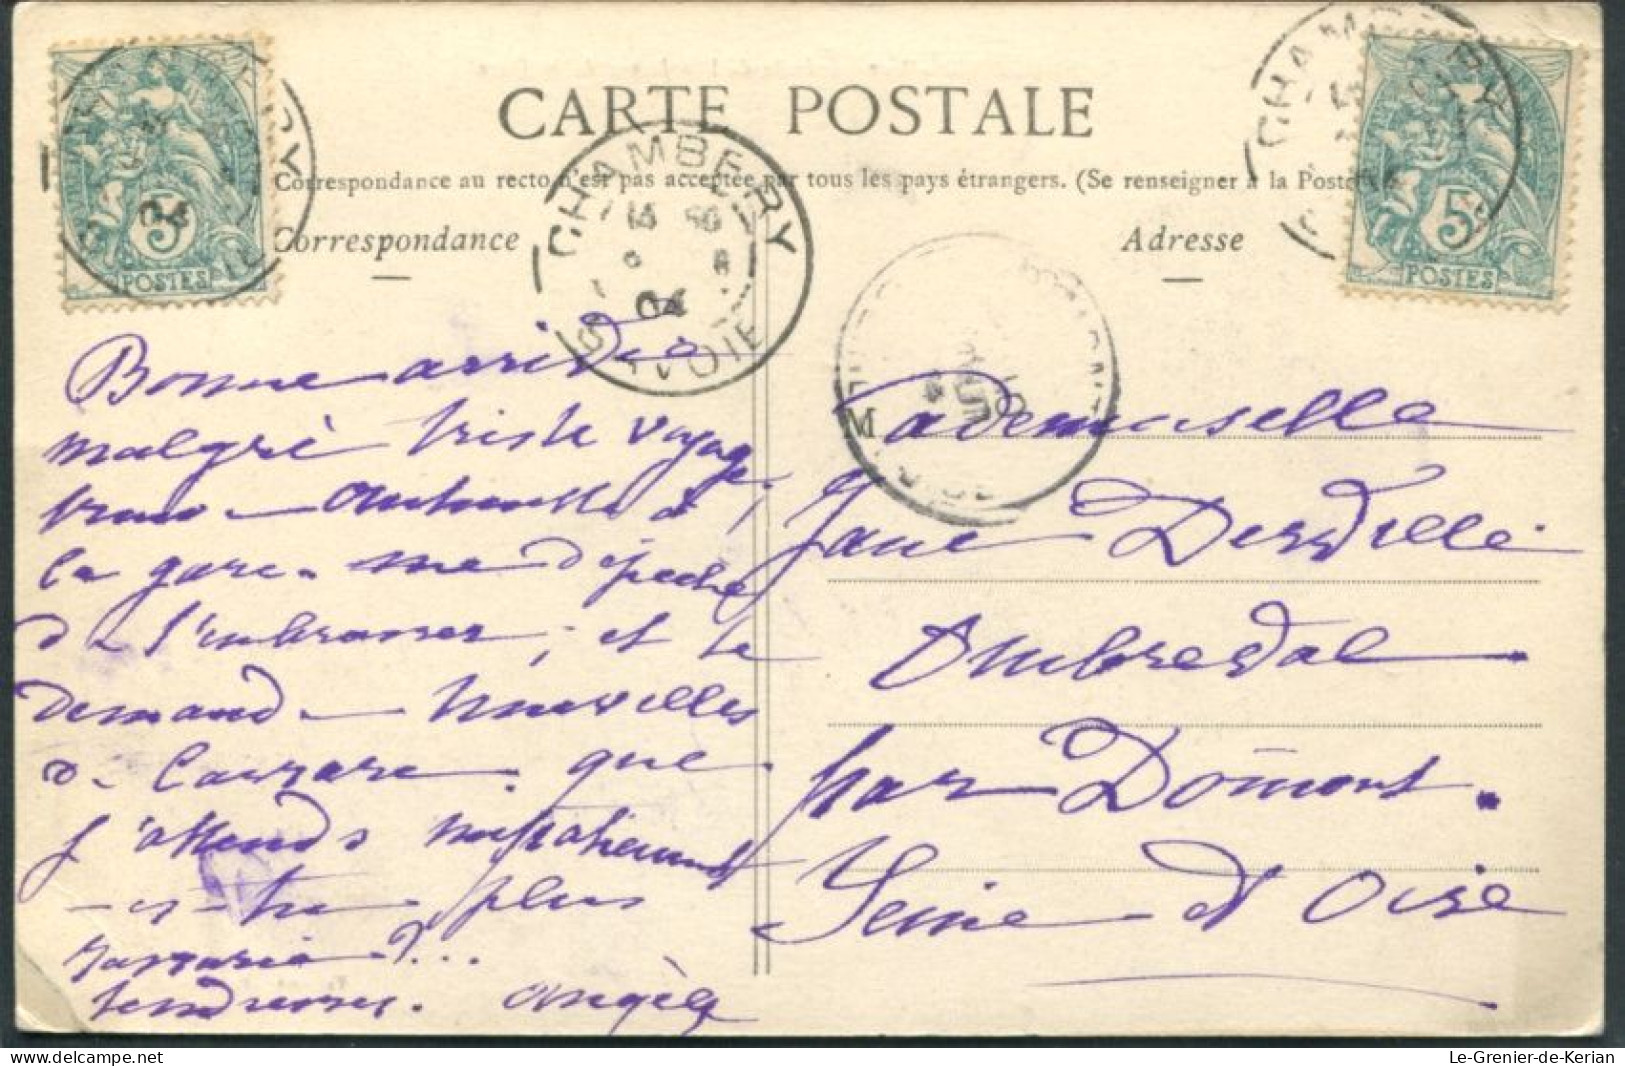 CARTE POSTALE
Correspondance au recto n'est pas acceptée par tous les pays étrangers. (Se renseigner à la Poste
Correspondance
Adresse
CHAMBERY
SAVOIE
04
5
POSTES
5
POSTES
Bonne arrivée
malgré triste voyage.
à
la gare. me dépêche
de t'embrasser, et te
demande nouvelles
de Laurare que
j'attends impatiemment
es-tu plus
rassurée ?...
tendresses. Angèle
Mademoiselle
Jane Desdille
Ombresdal
par Domont.
Seine et Oise
Le-Grenier-de-Kerian